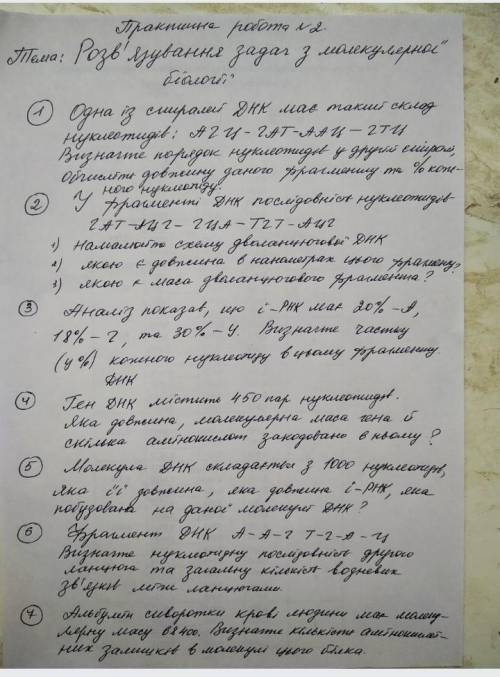 Практична робота №2.
Тема: Розв'язування задач з молекулярної
біології
① Одна із спіралей ДНК має такий склад
нуклеотидів: АГЦ - ГАТ - ААЦ - ГТЦ
Визначте порядок нуклеотидів у другій спіралі,
Обчисліть довжину даного фрагменту та % кож-
ного нуклеотиду.
② У фрагменті ДНК послідовність нуклеотидів
ГАТ - АЦГ - ГЦА - ТГТ - АЦГ
1) намалюйте схему дволанцюгової ДНК
2) якою є довжина в нанометрах цього фрагменту?
3) якою є маса дволанцюгового фрагмента?
③ Аналіз показав, що і-РНК має 20% - А,
18% - Г, та 30% - У. Визначте частку
(у %) кожного нуклеотиду в цьому фрагменті
ДНК
④ Ген ДНК містить 450 пар нуклеотидів.
Яка довжина, молекулярна маса гена й
скільки амінокислот закодовано в ньому?
⑤ Молекула ДНК складається з 1000 нуклеотидів,
яка її довжина, яка довжина і-РНК, яка
побудована на даної молекулі ДНК?
⑥ Фрагмент ДНК А-А-Г Т-Г-А-Ц
Визначте нуклеотидну послідовність другого
ланцюга та загальну кількість водневих
зв'язків між ланцюгами.
⑦ Альбумін сиворотки крові людини має молеку-
лярну масу 68400. Визначте кількість амінокислот-
них залишків в молекулі цього білка.